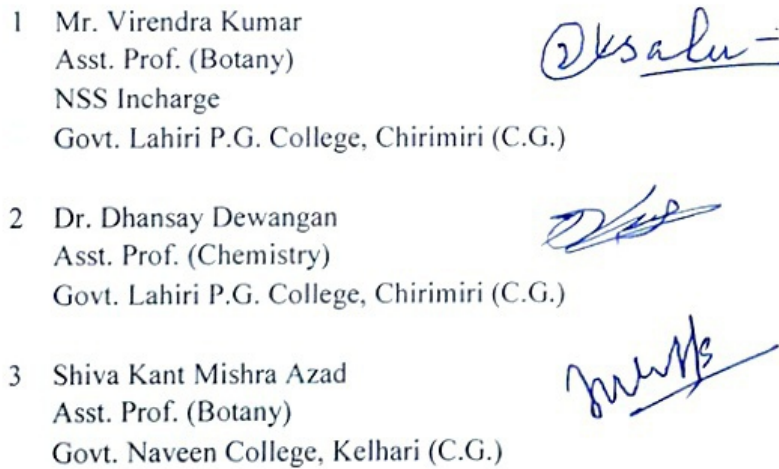 1 Mr. Virendra Kumar
Asst. Prof. (Botany)
NSS Incharge
Govt. Lahiri P.G. College, Chirimiri (C.G.)
2 Dr. Dhansay Dewangan
Asst. Prof. (Chemistry)
Govt. Lahiri P.G. College, Chirimiri (C.G.)
3 Shiva Kant Mishra Azad
Asst. Prof. (Botany)
Govt. Naveen College, Kelhari (C.G.)